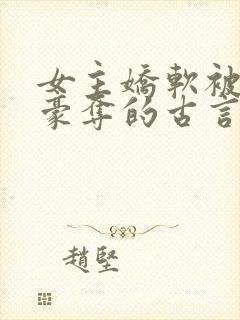 女主嬌軟被
豪奪的古言
趙堅